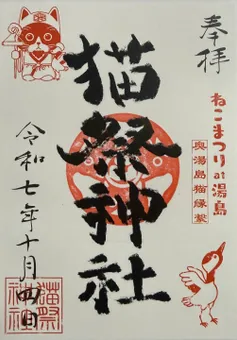 奉拝
ねこまつり at 湯島
奥湯島猫縁塾
猫祭神社
令和七年十月四日
猫祭
神社